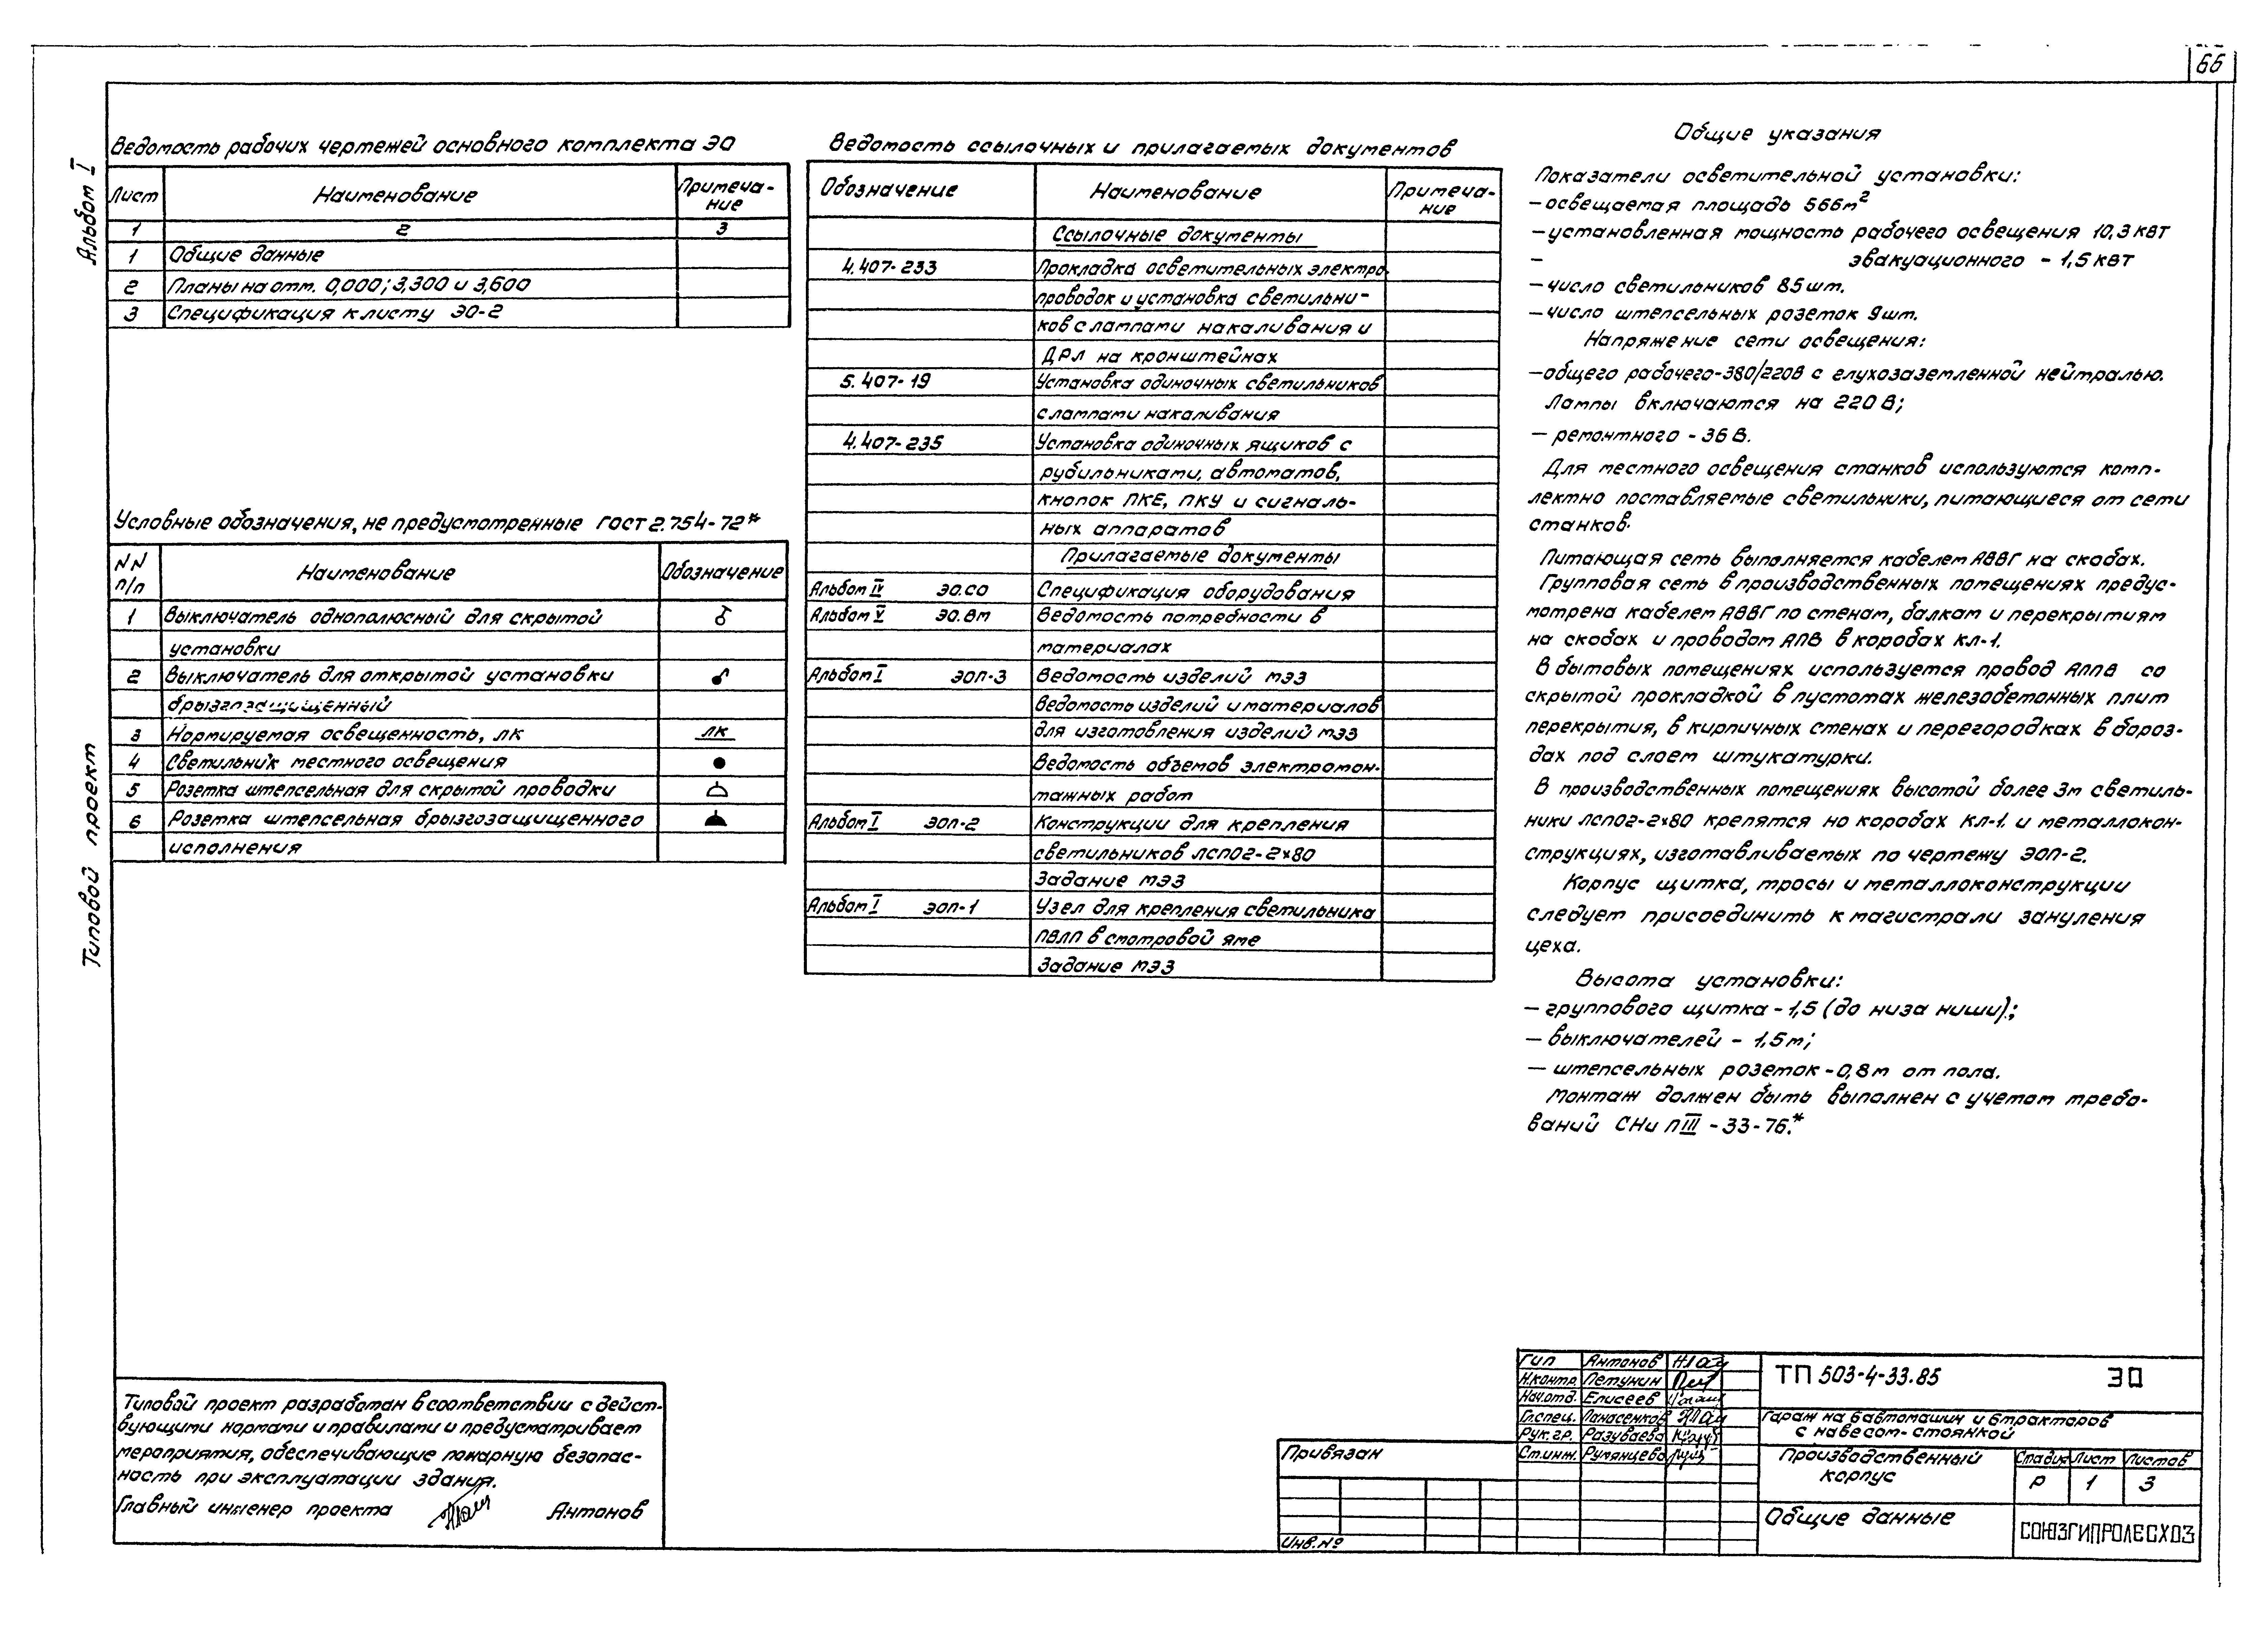 66
Альбом I
Типовой проект
Ведомость рабочих чертежей основного комплекта ЭО
Лист Наименование Примеча-
ние
1 2 3
1 Общие данные
2 Планы на отм. 0,000; 3,300 и 3,600
3 Спецификация к листу ЭО-2
Условные обозначения, не предусмотренные ГОСТ 2.754-72*
NN
п/п Наименование Обозначение
1 Выключатель однополюсный для скрытой
установки
2 Выключатель для открытой установки
брызгозащищенный
3 Нормируемая освещенность, лк лк
4 Светильник местного освещения
5 Розетка штепсельная для скрытой проводки
6 Розетка штепсельная брызгозащищенного
исполнения
Ведомость ссылочных и прилагаемых документов
Обозначение Наименование Примеча-
ние
Ссылочные документы
4.407-233 Прокладка осветительных электро-
проводок и установка светильни-
ков с лампами накаливания и
ДРЛ на кронштейнах
5.407-19 Установка одиночных светильников
с лампами накаливания
4.407-235 Установка одиночных ящиков с
рубильниками, автоматов,
кнопок ПКЕ, ПКУ и сигналь-
ных аппаратов
Прилагаемые документы
Альбом IV ЭО.СО Спецификация оборудования
Альбом V ЭО.ВМ Ведомость потребности в
материалах
Альбом I ЭОП-3 Ведомость изделий МЭЗ
Ведомость изделий и материалов
для изготовления изделий МЭЗ
Ведомость объемов электромон-
тажных работ
Альбом I ЭОП-2 Конструкции для крепления
светильников ЛСП02-2х80
Задание МЭЗ
Альбом I ЭОП-1 Узел для крепления светильника
ПВЛП в смотровой яме
Задание МЭЗ
Общие указания
Показатели осветительной установки:
- освещаемая площадь 566м²
- установленная мощность рабочего освещения 10,3 квт
- эвакуационного - 1,5 квт
- число светильников 85 шт.
- число штепсельных розеток 9 шт.
Напряжение сети освещения:
- общего рабочего-380/220В с глухозаземленной нейтралью.
Лампы включаются на 220 В;
- ремонтного - 36 В.
Для местного освещения станков используются комп-
лектно поставляемые светильники, питающиеся от сети
станков.
Питающая сеть выполняется кабелем АВВГ на скобах.
Групповая сеть в производственных помещениях предус-
мотрена кабелем АВВГ по стенам, балкам и перекрытиям
на скобах и проводом АПВ в коробах КЛ-1.
В бытовых помещениях используется провод АППВ со
скрытой прокладкой в пустотах железобетонных плит
перекрытия, в кирпичных стенах и перегородках в бороз-
дах под слоем штукатурки.
В производственных помещениях высотой более 3м светиль-
ники ЛСП02-2х80 крепятся на коробах КЛ-1. и металлокон-
струкциях, изготавливаемых по чертежу ЭОП-2.
Корпус щитка, тросы и металлоконструкции
следует присоединить к магистрали зануления
цеха.
Высота установки:
- группового щитка - 1,5 (до низа ниши).;
- выключателей - 1,5м;
- штепсельных розеток - 0,8м от пола.
Монтаж должен быть выполнен с учетом требо-
ваний СНиП III - 33-76.*
Типовой проект разработан в соответствии с дейст-
вующими нормами и правилами и предусматривает
мероприятия, обеспечивающие пожарную безопас-
ность при эксплуатации здания.
Главный инженер проекта Антонов
Привязан
Инв.№
Гип Антонов
Н.контр. Петунин
Нач.отд. Елисеев
Гл.спец. Панасенков
Рук.гр. Разуваева
Ст.инж. Румянцева
ТП 503-4-33.85 ЭО
Гараж на 6 автомашин и 6 тракторов
с навесом-стоянкой
Производственный
корпус
Стадия Лист Листов
Р 1 3
Общие данные
СОЮЗГИПРОЛЕСХОЗ